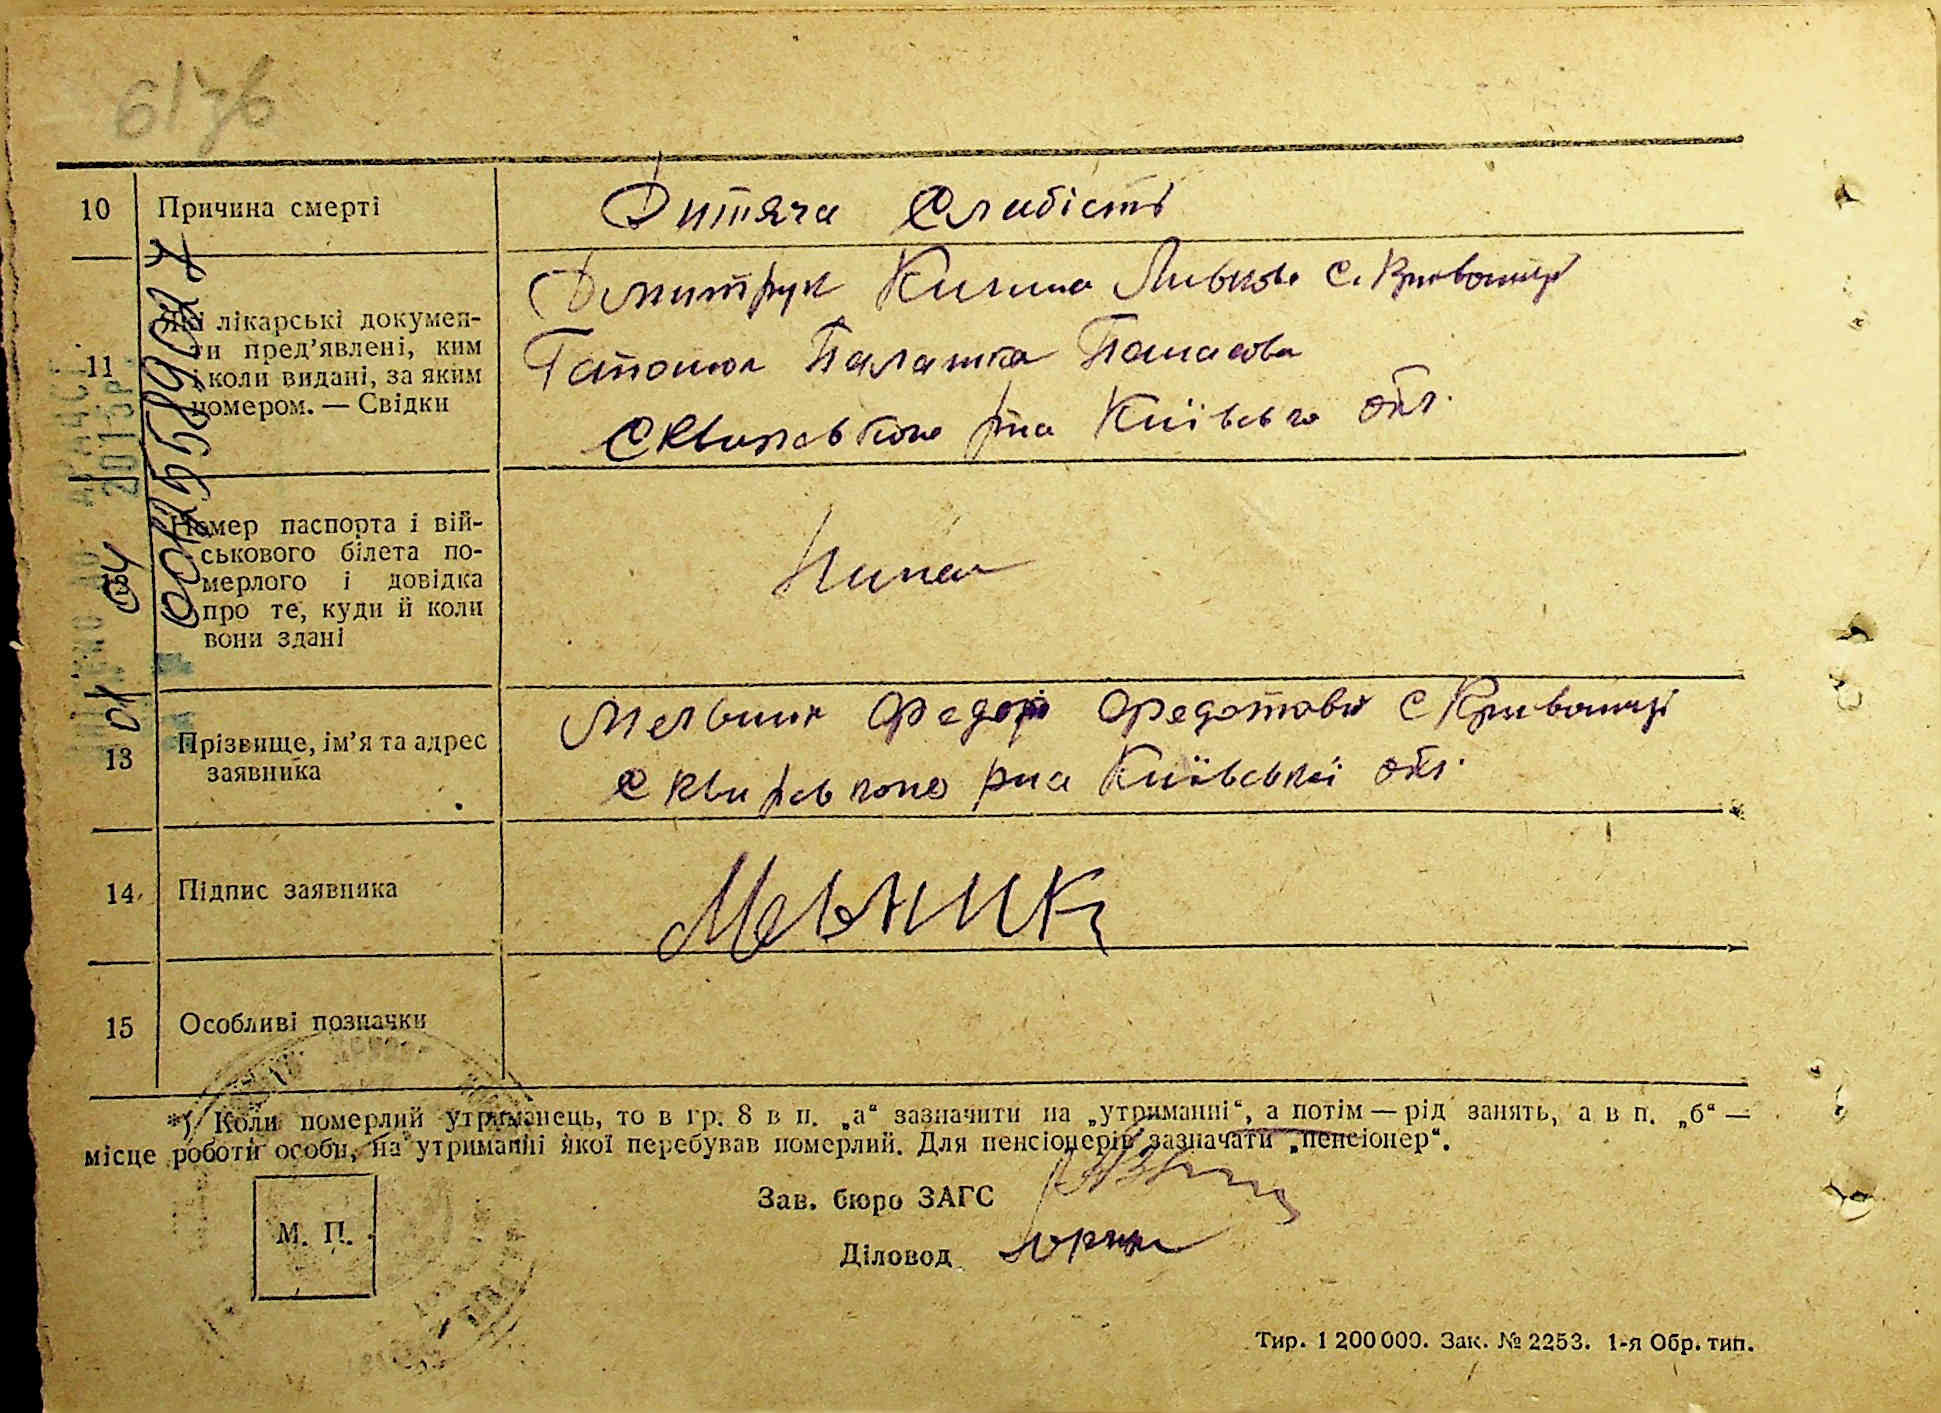 10 Причина смерті Дитяча Слабість
11 Які лікарські докумен-
ти пред'явлені, ким
і коли видані, за яким
номером. — Свідки
Дмитрук Килина Львова с. Кривошиї
Гапонюк Палашка Панасова
Сквирського р-на Київсько обл.
Номер паспорта і вій-
ськового білета по-
мерлого і довідка
про те, куди й коли
вони здані
Нима
13 Прізвище, ім'я та адрес
заявника
Мельник Федор Федотови с Кривошиї
Сквирського рна Київської обл.
14 Підпис заявника Мельник
15 Особливі позначки
*) Коли померлий утриманець, то в гр. 8 в п. „а“ зазначити на „утриманні“, а потім — рід занять, а в п. „б“ —
місце роботи особи, на утриманні якої перебував померлий. Для пенсіонерів зазначати „пенсіонер“.
М. П.
Зав. бюро ЗАГС
Діловод
Тир. 1 200 000. Зак. № 2253. 1-я Обр. тип.